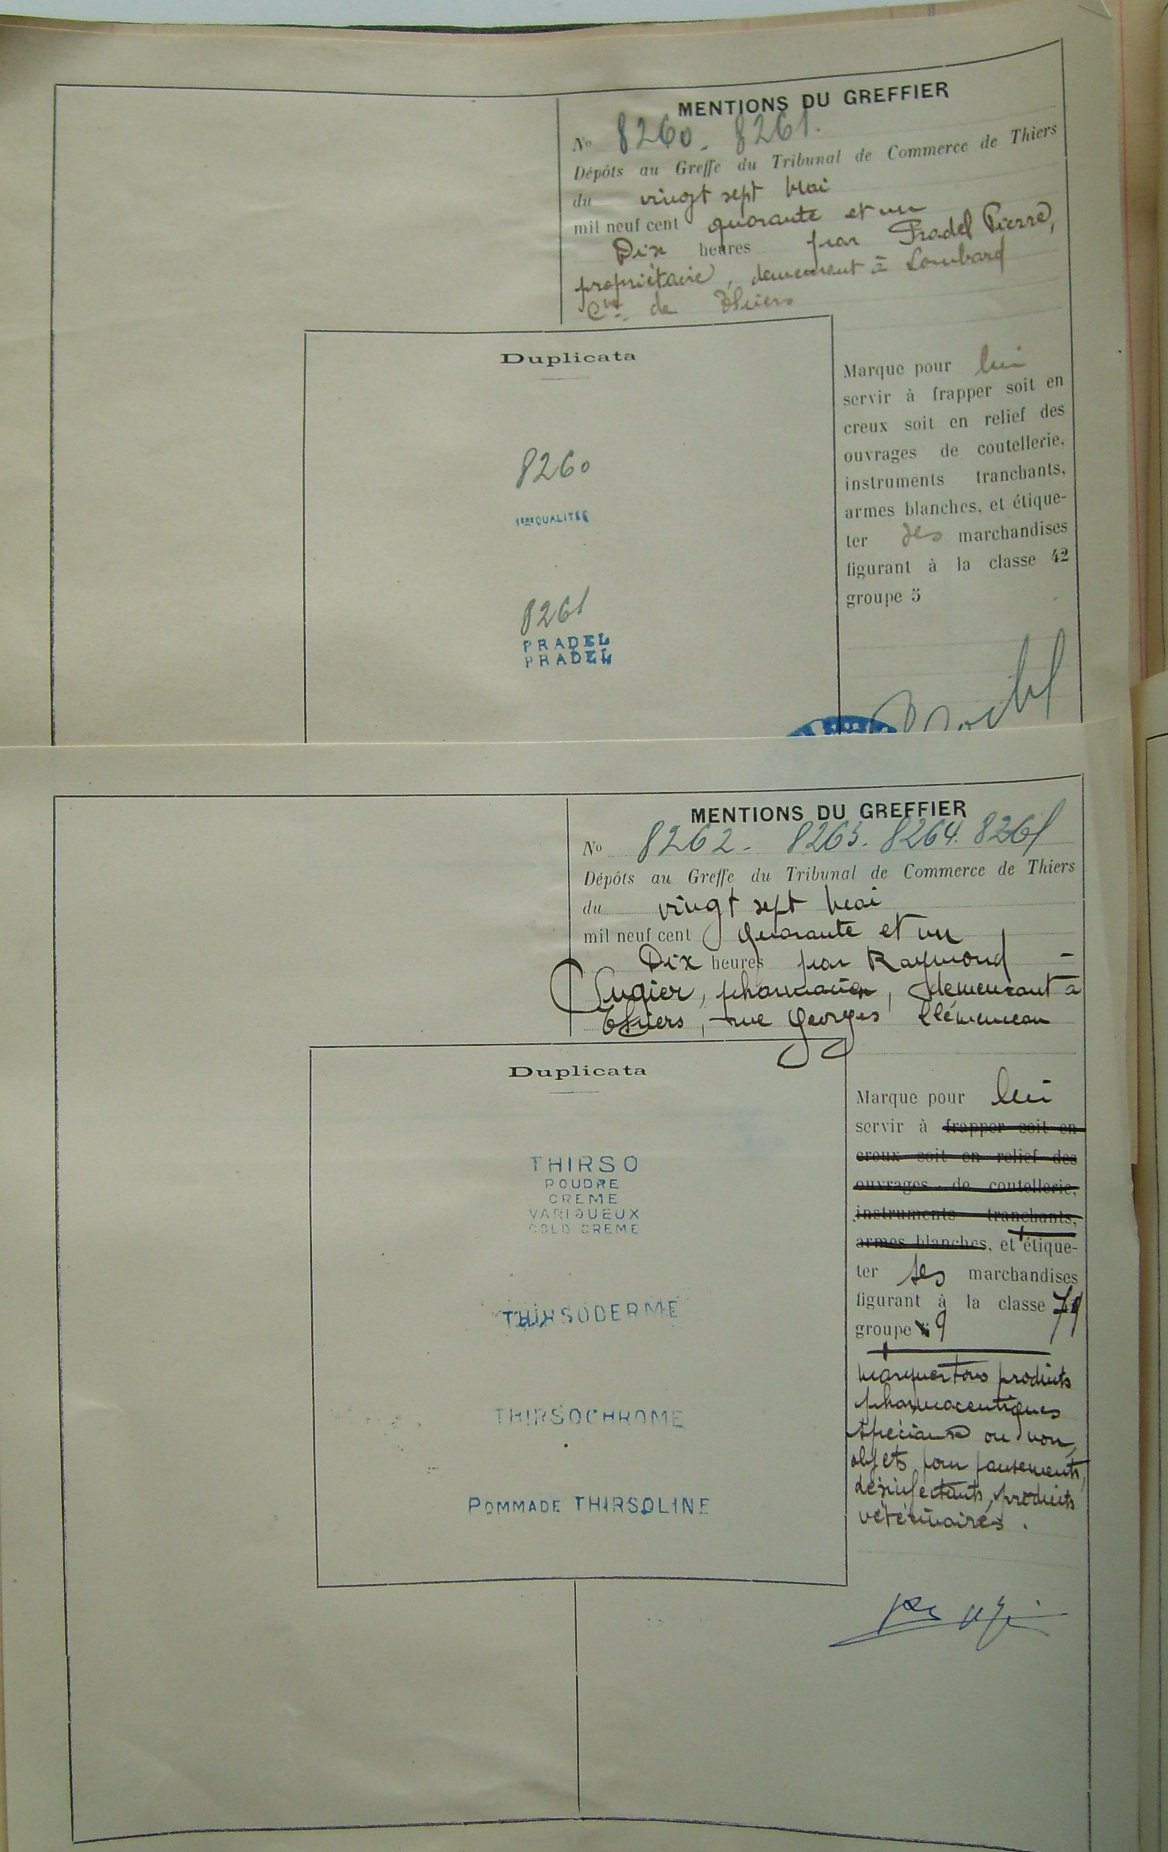 MENTIONS DU GREFFIER
No 8260. 8261.
Dépôts au Greffe du Tribunal de Commerce de Thiers
du vingt sept Mai
mil neuf cent quarante et un
Dix heures par Pradel Pierre,
propriétaire, demeurant à Lombard
Cne de Thiers
Duplicata
8260
1ERE QUALITEE
8261
PRADEL
PRADEL
Marque pour lui
servir à frapper soit en
creux soit en relief des
ouvrages de coutellerie,
instruments tranchants,
armes blanches, et étique-
ter ses marchandises
figurant à la classe 42
groupe 5
MENTIONS DU GREFFIER
No 8262. 8263. 8264. 8265
Dépôts au Greffe du Tribunal de Commerce de Thiers
du vingt sept Mai
mil neuf cent quarante et un
Dix heures par Raymond
Sugier, pharmacien, demeurant à
Thiers, rue Georges Clémenceau
Duplicata
THIRSO
POUDRE
CREME
VARIQUEUX
COLD CREME
THIRSODERME
THIRSOCHROME
POMMADE THIRSOLINE
Marque pour lui
servir à frapper soit en
creux soit en relief des
ouvrages de coutellerie,
instruments tranchants,
armes blanches, et étique-
ter ses marchandises
figurant à la classe 79
groupe 9
marquer tous produits
pharmaceutiques
spéciaux ou non,
objets pour pansements,
désinfectants, produits
vétérinaires.